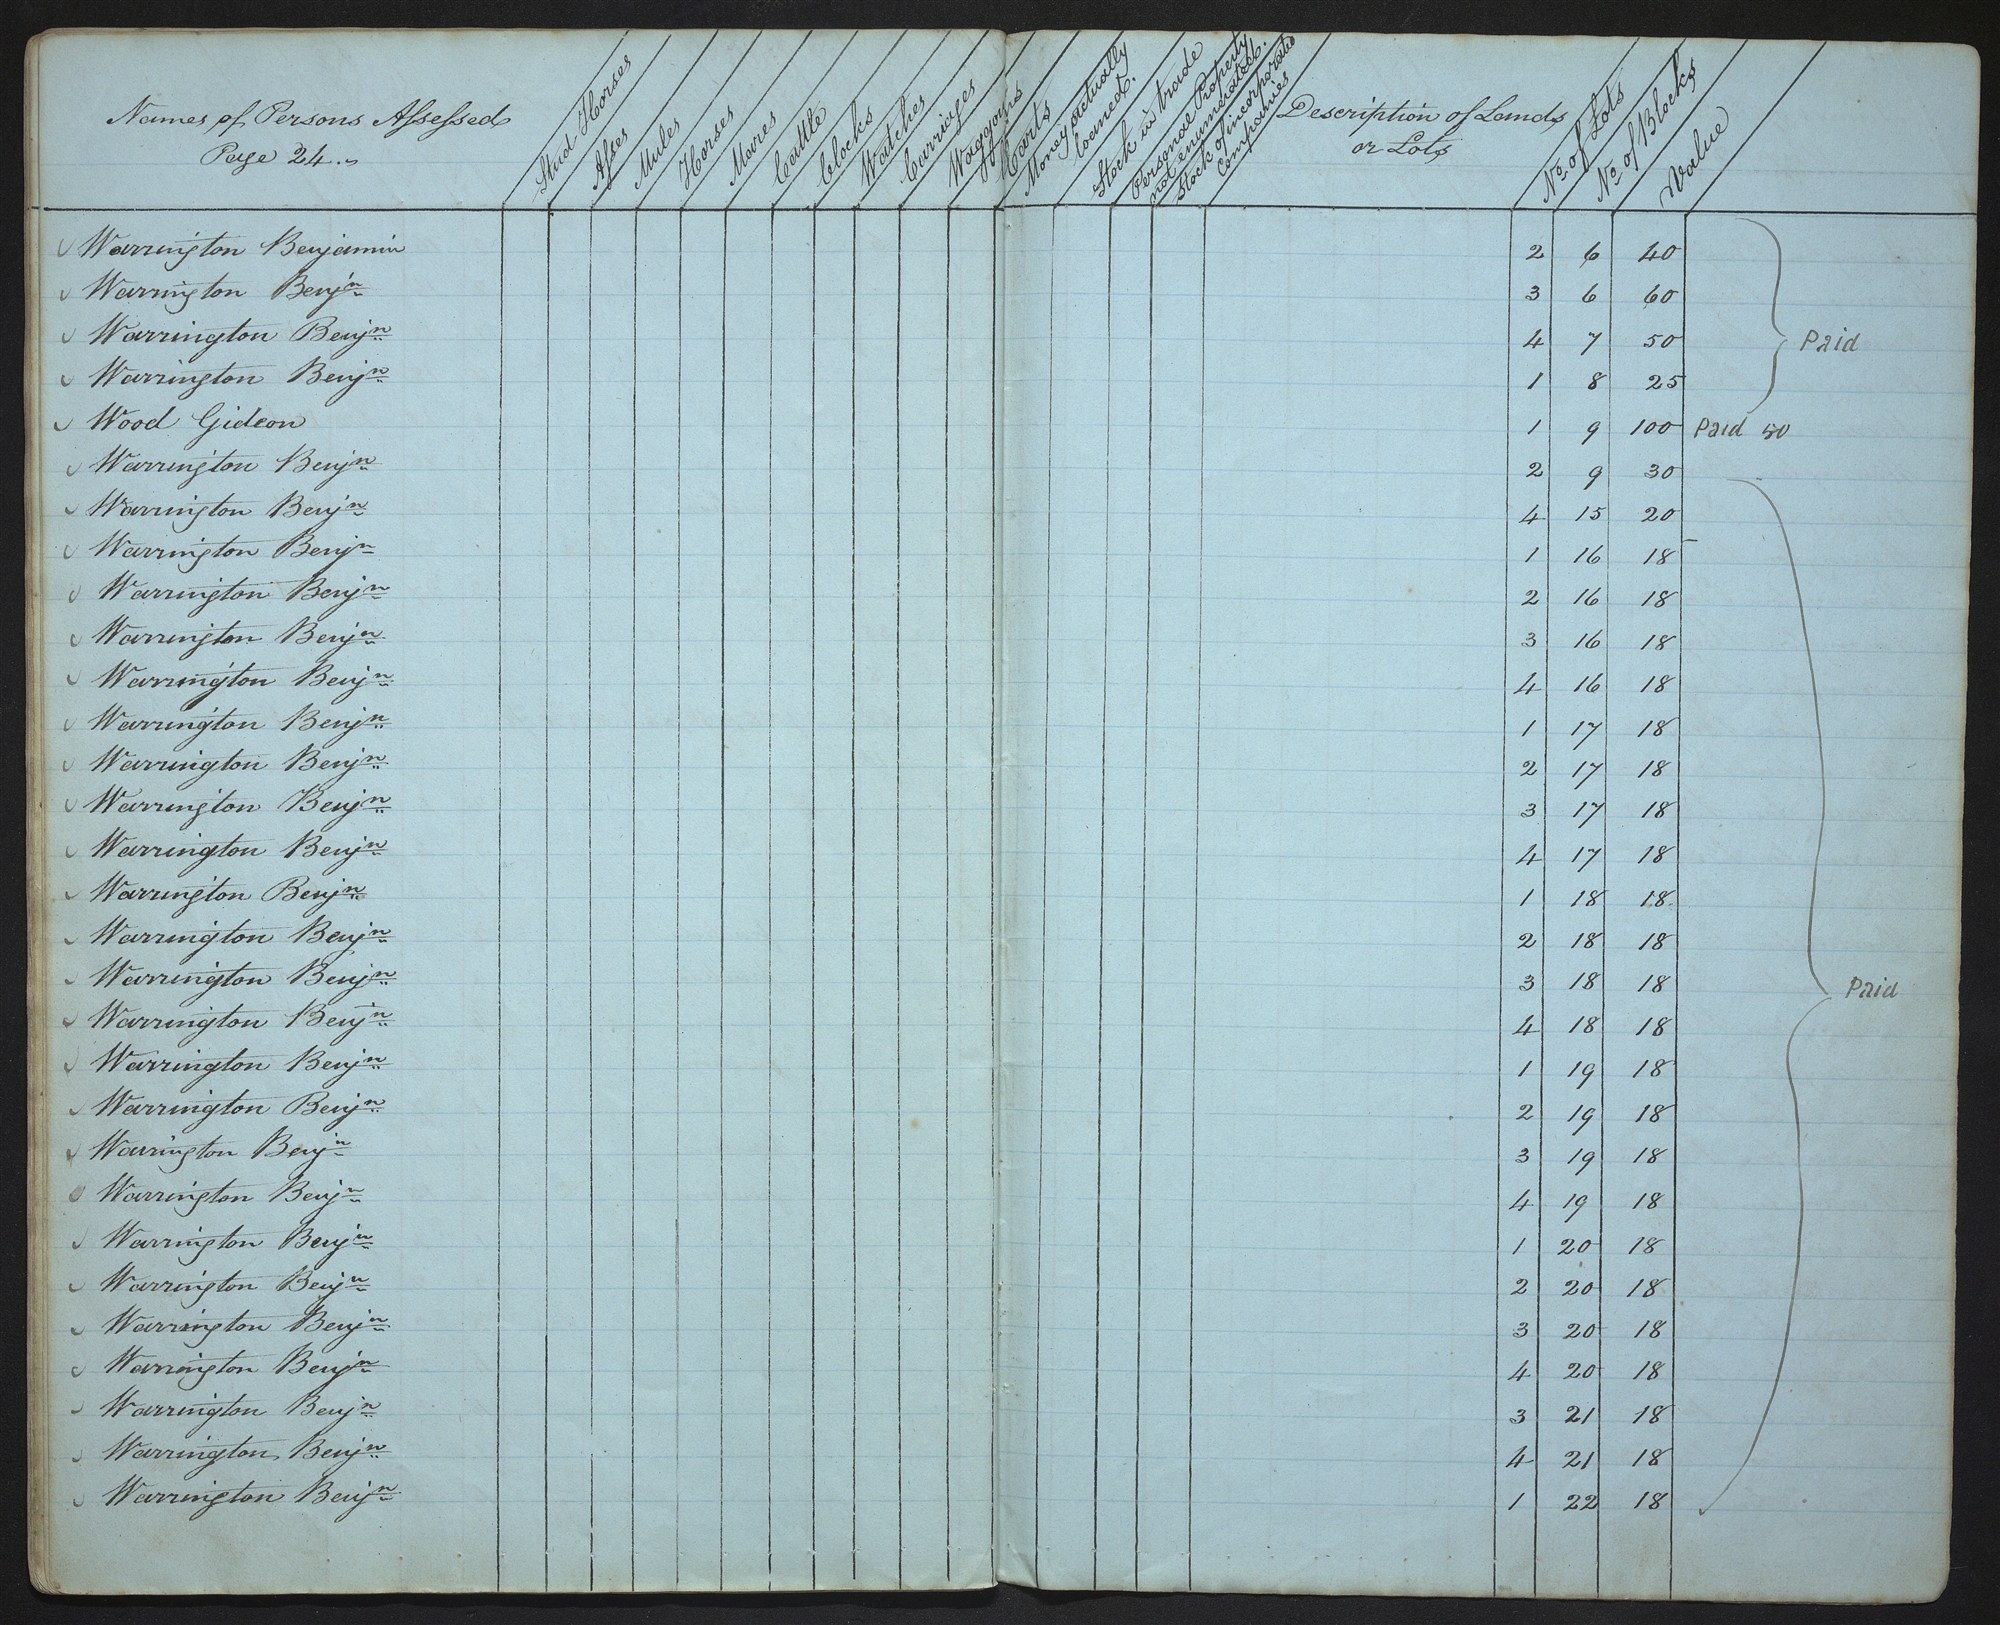 Names of Persons Assessed
Page 24
Stud Horses
Asses
Mules
Horses
Mares
Cattle
Clocks
Watches
Carriages
Waggons
Carts
Money actually loaned.
Stock in trade
Personal Property not enumerated.
Stock of incorporated Companies
Description of Lands or Lots
No. of Lots
No. of Blocks
Value
Warrington Benjamin 2 6 40
Warrington Benjn 3 6 60
Warrington Benjn 4 7 50 Paid
Warrington Benjn 1 8 25
Wood Gideon 1 9 100 Paid 50
Warrington Benjn 2 9 30
Warrington Benjn 4 15 20
Warrington Benjn 1 16 18
Warrington Benjn 2 16 18
Warrington Benjn 3 16 18
Warrington Benjn 4 16 18
Warrington Benjn 1 17 18
Warrington Benjn 2 17 18
Warrington Benjn 3 17 18
Warrington Benjn 4 17 18
Warrington Benjn 1 18 18
Warrington Benjn 2 18 18
Warrington Benjn 3 18 18 Paid
Warrington Benjn 4 18 18
Warrington Benjn 1 19 18
Warrington Benjn 2 19 18
Warrington Benjn 3 19 18
Warrington Benjn 4 19 18
Warrington Benjn 1 20 18
Warrington Benjn 2 20 18
Warrington Benjn 3 20 18
Warrington Benjn 4 20 18
Warrington Benjn 3 21 18
Warrington Benjn 4 21 18
Warrington Benjn 1 22 18